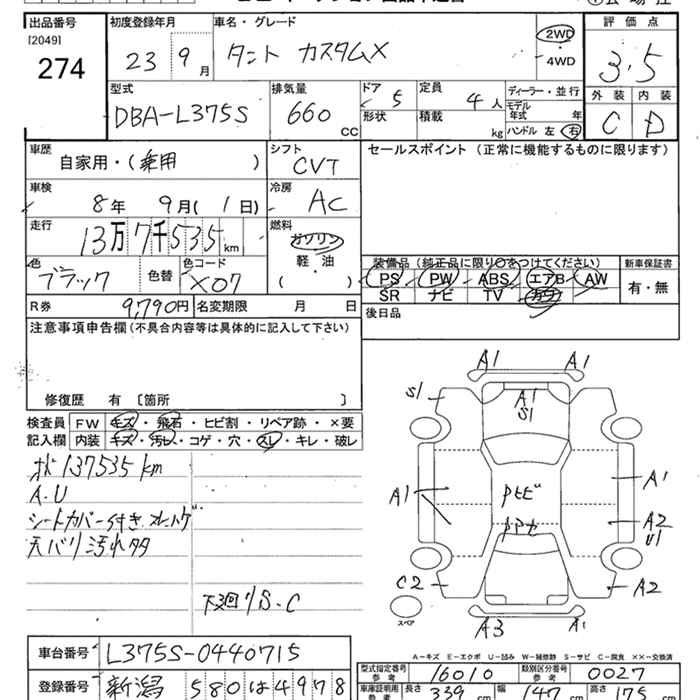 出品番号
[2049]
274
初度登録年月
23 9月
車名・グレード
タント カスタムX
2WD
・
4WD
評価点
3.5
外装 内装
C D
型式
DBA-L375S
排気量
660 CC
ドア 5
形状
定員 4人
積載 kg
ディーラー・並行
モデル年式 年
ハンドル 左 右
車歴
自家用・(乗用)
シフト
CVT
セールスポイント (正常に機能するものに限ります)
車検
8年 9月(1日)
冷房
AC
走行
13万7千535km
燃料
ガソリン
軽・油
( )
色
ブラック
色替
色コード
X07
装備品 (純正品に限り○をつけてください)
PS PW ABS エアB AW
SR ナビ TV カワ
新車保証書
有・無
R券 9,790円
名変期限 月 日
後日品
注意事項申告欄(不具合内容等は具体的に記入して下さい)
修復歴 有 〔箇所 〕
検査員記入欄
FW キズ・飛石・ヒビ割・リペア跡・×要
内装 キズ・汚レ・コゲ・穴・スレ・キレ・破レ
137535km
A.U
シートカバー付き
天バリ汚れ多
下廻りS.C
A1 A1
S1
A1
S1
A1
A1
A2
U1
C2
A2
A3 A1
スペア
車台番号 L375S-0440715
登録番号 新潟 580 は 4978
A-キズ E-エクボ U-凹み W-補修跡 S-サビ C-腐食 XX-交換済
型式指定番号 参考 16010
類別区分番号 参考 0027
車庫証明用 参考 長さ 339 cm 幅 147 cm 高さ 175 cm